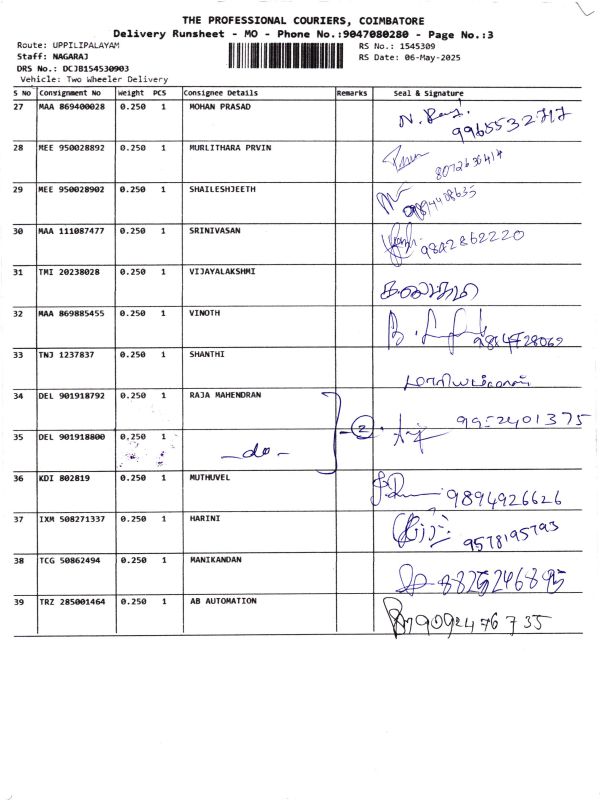 THE PROFESSIONAL COURIERS, COIMBATORE
Delivery Runsheet - MO - Phone No.:9047080280 - Page No.:3
Route: UPPILIPALAYAM RS No.: 1545309
Staff: NAGARAJ RS Date: 06-May-2025
DRS No.: DCJB154530903
Vehicle: Two Wheeler Delivery
S No Consignment No Weight PCS Consignee Details Remarks Seal & Signature
27 MAA 869400028 0.250 1 MOHAN PRASAD 9965532717
28 MEE 950028892 0.250 1 MURLITHARA PRVIN
29 MEE 950028902 0.250 1 SHAILESHJEETH
30 MAA 111087477 0.250 1 SRINIVASAN 9842862220
31 TMI 20238028 0.250 1 VIJAYALAKSHMI
32 MAA 869885455 0.250 1 VINOTH
33 TNJ 1237837 0.250 1 SHANTHI
34 DEL 901918792 0.250 1 RAJA MAHENDRAN 2 9952401375
35 DEL 901918800 0.250 1 -do-
36 KDI 802819 0.250 1 MUTHUVEL 9894926626
37 IXM 508271337 0.250 1 HARINI 9578195793
38 TCG 50862494 0.250 1 MANIKANDAN 8825246895
39 TRZ 285001464 0.250 1 AB AUTOMATION 9092476735